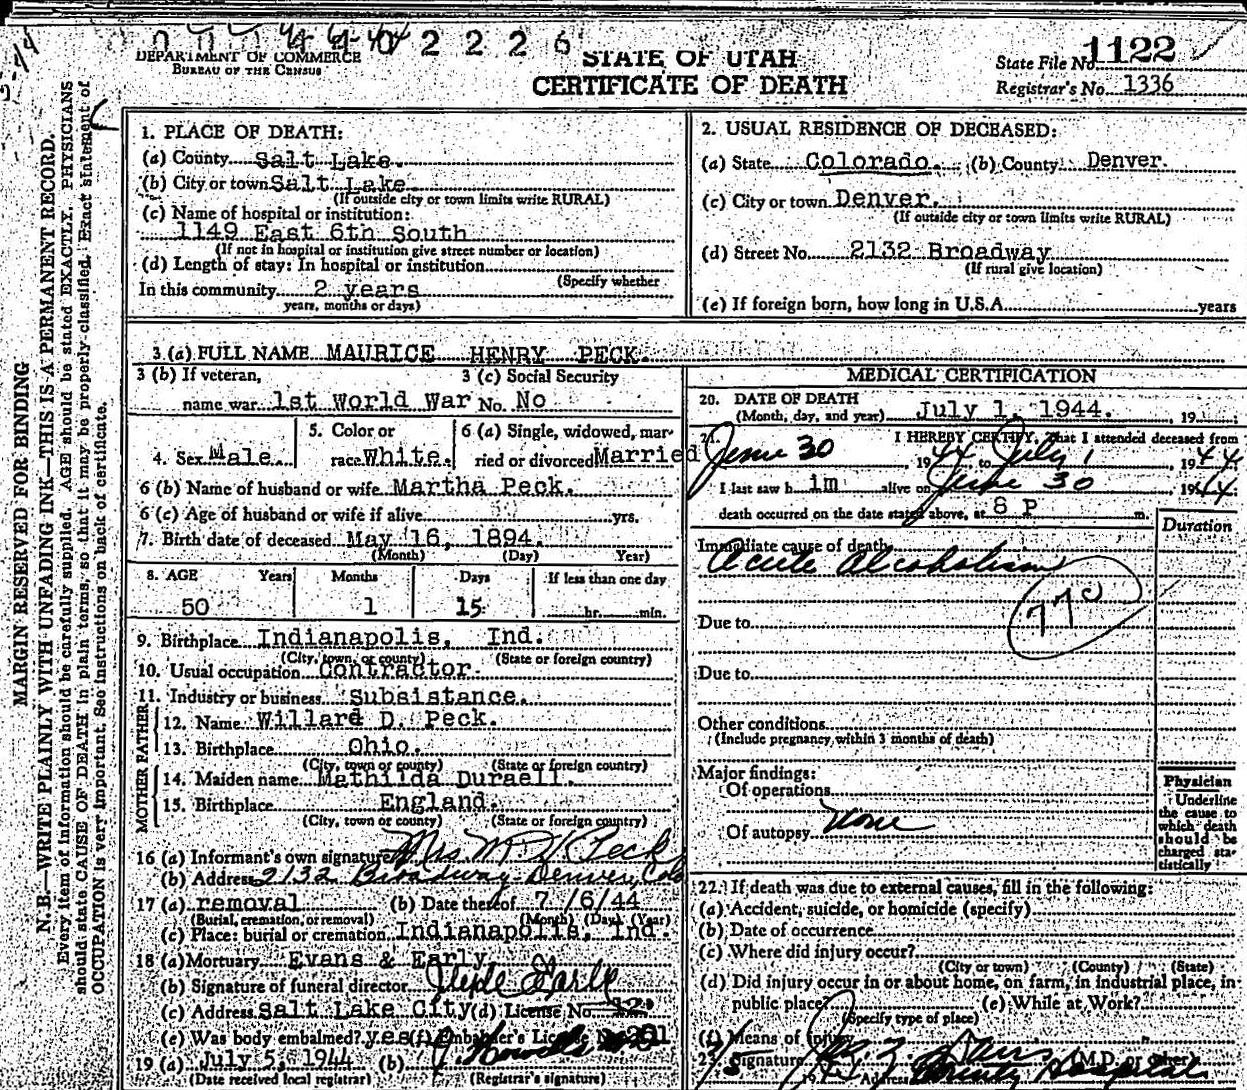 2 2 2 6
DEPARTMENT OF COMMERCE
BUREAU OF THE CENSUS
STATE OF UTAH
CERTIFICATE OF DEATH
State File No. 1122
Registrar's No. 1336
MARGIN RESERVED FOR BINDING
N. B.—WRITE PLAINLY WITH UNFADING INK—THIS IS A PERMANENT RECORD.
Every item of information should be carefully supplied. AGE should be stated EXACTLY. PHYSICIANS
should state CAUSE OF DEATH in plain terms, so that it may be properly classified. Exact statement of
OCCUPATION is very important. See instructions on back of certificate.
1. PLACE OF DEATH:
(a) County Salt Lake.
(b) City or town Salt Lake
(If outside city or town limits write RURAL)
(c) Name of hospital or institution:
1149 East 6th South
(If not in hospital or institution give street number or location)
(d) Length of stay: In hospital or institution
(Specify whether
In this community 2 years
years, months or days)
2. USUAL RESIDENCE OF DECEASED:
(a) State Colorado. (b) County Denver.
(c) City or town Denver.
(If outside city or town limits write RURAL)
(d) Street No. 2132 Broadway
(If rural give location)
(e) If foreign born, how long in U.S.A. years
3 (a) FULL NAME MAURICE HENRY PECK.
3 (b) If veteran,
name war 1st World War
3 (c) Social Security
No. No
4. Sex Male.
5. Color or
race White.
6 (a) Single, widowed, mar-
ried or divorced Married
6 (b) Name of husband or wife Martha Peck.
6 (c) Age of husband or wife if alive yrs.
7. Birth date of deceased May 16, 1894.
(Month) (Day) Year)
8. AGE Years Months Days If less than one day
50 1 15 hr. min.
9. Birthplace Indianapolis, Ind.
(City, town, or county) (State or foreign country)
10. Usual occupation Contractor.
11. Industry or business Subsistance.
FATHER
12. Name Willard D. Peck.
13. Birthplace Ohio.
(City, town or county) (State or foreign country)
MOTHER
14. Maiden name Mathilda Duraell.
15. Birthplace England.
(City, town or county) (State or foreign country)
16 (a) Informant's own signature Mrs M H Peck
(b) Address 2132 Broadway Denver, Colo
17 (a) removal (b) Date thereof 7/6/44
(Burial, cremation, or removal) (Month) (Day) (Year)
(c) Place: burial or cremation Indianapolis, Ind.
18 (a) Mortuary Evans & Early
(b) Signature of funeral director Early
(c) Address Salt Lake City (d) License No. 12
(e) Was body embalmed? yes (f) Embalmer's License No.
19 (a) July 5, 1944 (b)
(Date received local registrar) (Registrar's signature)
MEDICAL CERTIFICATION
20. DATE OF DEATH
(Month, day, and year) July 1, 1944. 19
21. I HEREBY CERTIFY, that I attended deceased from
June 30, 1944, to July 1, 1944
I last saw h im alive on June 30, 1944
death occurred on the date stated above, at 8 P m.
Duration
Immediate cause of death
Acute Alcoholism
Due to
Due to
Other conditions
(Include pregnancy within 3 months of death)
Major findings:
Of operations
Of autopsy none
Physician
Underline
the cause to
which death
should be
charged sta-
tistically
22. If death was due to external causes, fill in the following:
(a) Accident, suicide, or homicide (specify)
(b) Date of occurrence
(c) Where did injury occur?
(City or town) (County) (State)
(d) Did injury occur in or about home, on farm, in industrial place, in
public place? (e) While at Work?
(Specify type of place)
(f) Means of injury
23. Signature (M.D. or other)
Address County Hospital